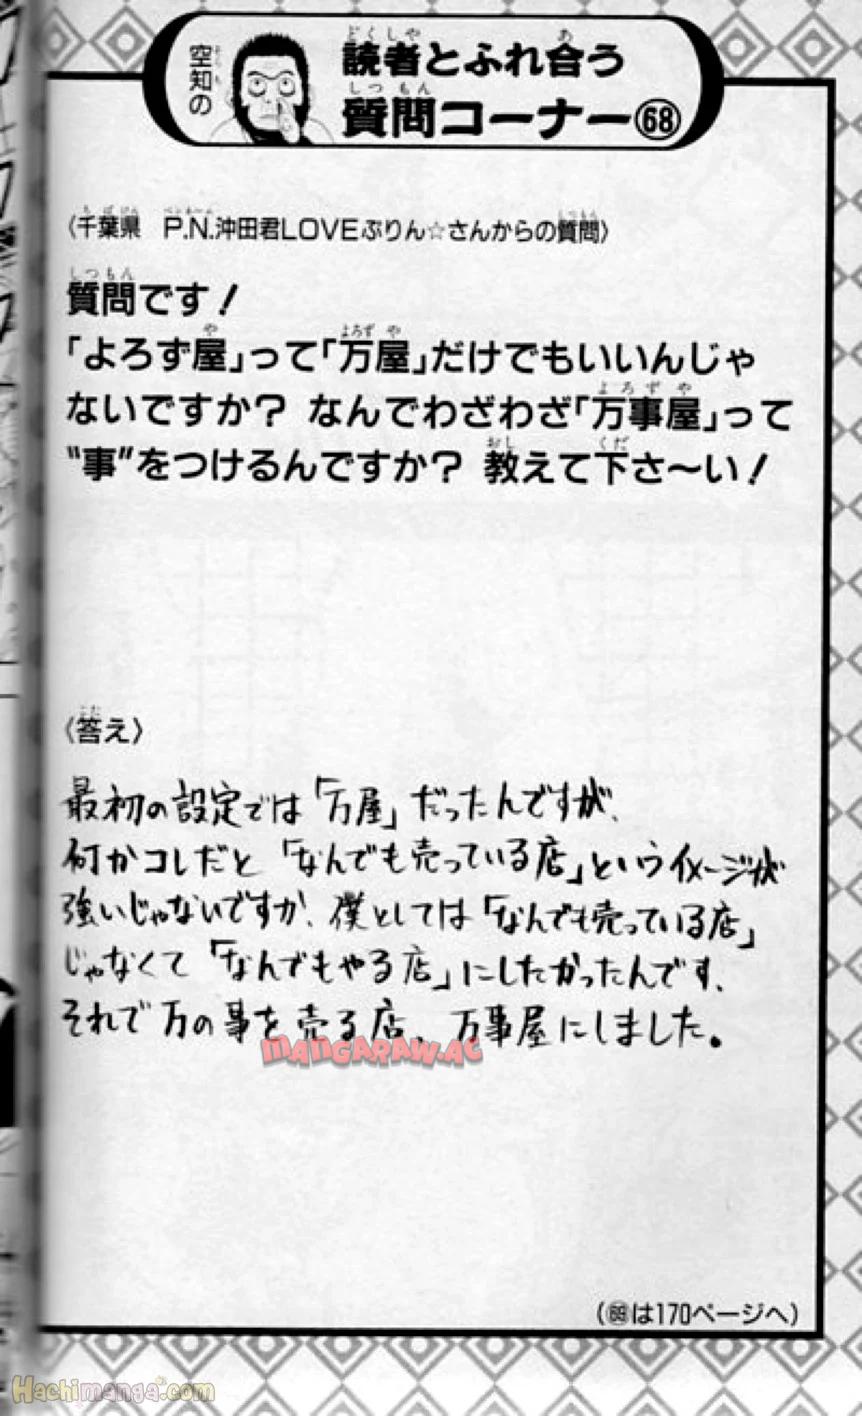 空知の
読者とふれ合う
質問コーナー68
〈千葉県　P.N.沖田君LOVEぷりん☆さんからの質問〉
質問です！
「よろず屋」って「万屋」だけでもいいんじゃ
ないですか？ なんでわざわざ「万事屋」って
“事”をつけるんですか？ 教えて下さ〜い！
〈答え〉
最初の設定では「万屋」だったんですが、
何かコレだと「なんでも売っている店」というイメージが
強いじゃないですか、僕としては「なんでも売っている店」
じゃなくて「なんでもやる店」にしたかったんです、
それで万の事を売る店、万事屋にしました。
MANGARAW.AC
（69は170ページへ）
Hachimanga.com